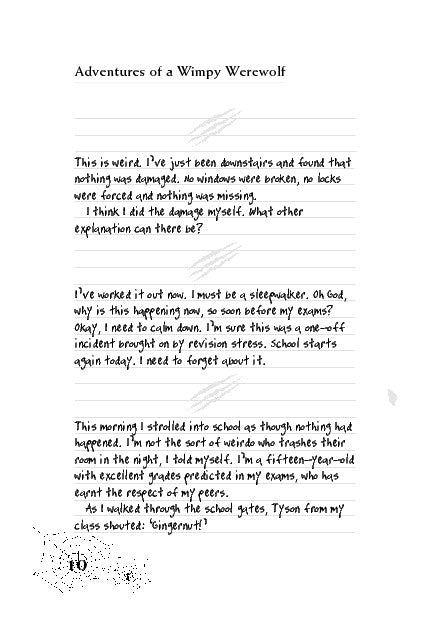 Adventures of a Wimpy Werewolf
This is weird. I've just been downstairs and found that
nothing was damaged. No windows were broken, no locks
were forced and nothing was missing.
I think I did the damage myself. What other
explanation can there be?
I've worked it out now. I must be a sleepwalker. Oh God,
why is this happening now, so soon before my exams?
Okay, I need to calm down. I'm sure this was a one-off
incident brought on by revision stress. School starts
again today. I need to forget about it.
This morning I strolled into school as though nothing had
happened. I'm not the sort of weirdo who trashes their
room in the night, I told myself. I'm a fifteen-year-old
with excellent grades predicted in my exams, who has
earnt the respect of my peers.
As I walked through the school gates, Tyson from my
class shouted: 'Gingernut!'
10